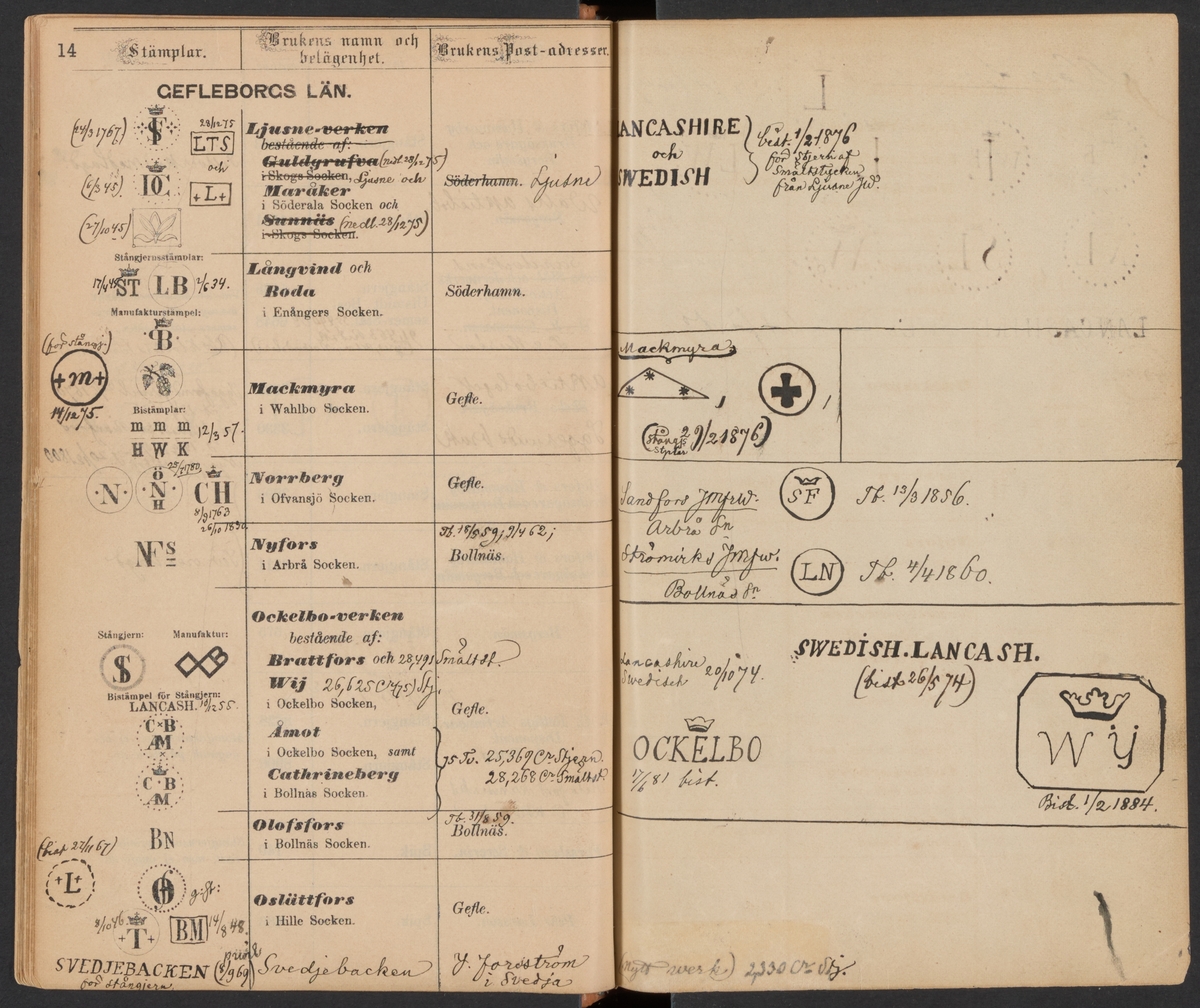 14
Stämplar.
Brukens namn och
belägenhet.
Brukens Post-adresser.
GEFLEBORGS LÄN.
(24/3 1767)
28/12 75
LTS
och
(6/3 45)
+L+
(27/10 45)
Ljusne-verken
bestående af:
Guldgrufva (nedl. 28/12 75)
i Skogs Socken, Ljusne och
Maråker
i Söderala Socken och
Sunnäs (nedl. 28/12 75)
i Skogs Socken.
Söderhamn. Ljusne
Stångjernsstämplar:
ST LB 2/6 34.
Manufakturstämpel:
B
Långvind och
Roda
i Enångers Socken.
Söderhamn.
(för stångj.)
+m+
14/12 75.
Bistämplar:
m m m
H W K
12/3 57.
Mackmyra
i Wahlbo Socken.
Gefle.
·N·
Ö
·N·
H
25/7 1780
CH
8/9 1763
26/10 1830
Norrberg
i Ofvansjö Socken.
Gefle.
NFs
Nyfors
i Arbrå Socken.
Bollnäs.
Stångjern: Manufaktur:
Bistämpel för Stångjern:
LANCASH. 10/12 55.
C×B
AM
C·B
AM
Ockelbo-verken
bestående af:
Brattfors och 28,491 Smältst.
Wij 26,625 Ctr (75) Stj.
i Ockelbo Socken,
Gefle.
Åmot
i Ockelbo Socken, samt
Cathrineberg
i Bollnäs Socken.
75 Tv. 25,369 Ctr Stjern.
28,268 Ctr Smältst.
BN
Olofsfors
i Bollnäs Socken.
Tb. 31/8 59.
Bollnäs.
(bist 27/11 67)
+L+
8/10 46
+T+
BM
14/8 48.
Oslättfors
i Hille Socken.
Gefle.
SVEDJEBACKEN
för stångjern.
Svedjebacken
J. Forsström
i Svedja
LANCASHIRE
och
SWEDISH
bist. 1/2 1876
för Stjern af
Smältstycken
från Ljusne JW.
Mackmyra
29/2 1876)
Sandfors JMfrW.
Arbrå Sn
SF
Tb. 13/3 1856.
Strömbks JMfw.
Bollnäs Sn.
LN
Tb. 4/4 1860.
Lancashire
Swedisch 20/10 74.
SWEDISH. LANCASH.
(bist 26/5 74)
OCKELBO
17/6 81 bist.
Wij
Bist. 1/2 1884.
(nytt werk) 2,330 Ctr Stj.